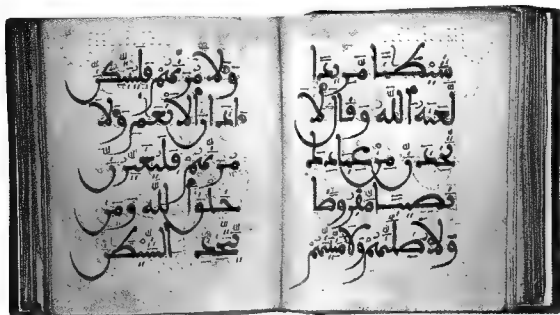 شَيْطَٰنًا مَّرِيدًا
لَّعَنَهُ اللَّهُ وَقَالَ لَأَ
تَّخِذَنَّ مِنْ عِبَادِكَ
نَصِيبًا مَّفْرُوضًا
وَلَأُضِلَّنَّهُمْ وَلَأُمَنِّيَنَّهُمْ
وَلَأٓمُرَنَّهُمْ فَلَيُبَتِّكُنَّ
ءَاذَانَ ٱلْأَنْعَٰمِ وَلَأٓ
مُرَنَّهُمْ فَلَيُغَيِّرُنَّ
خَلْقَ ٱللَّهِ وَمَنْ
يَتَّخِذِ ٱلشَّيْطَٰنَ